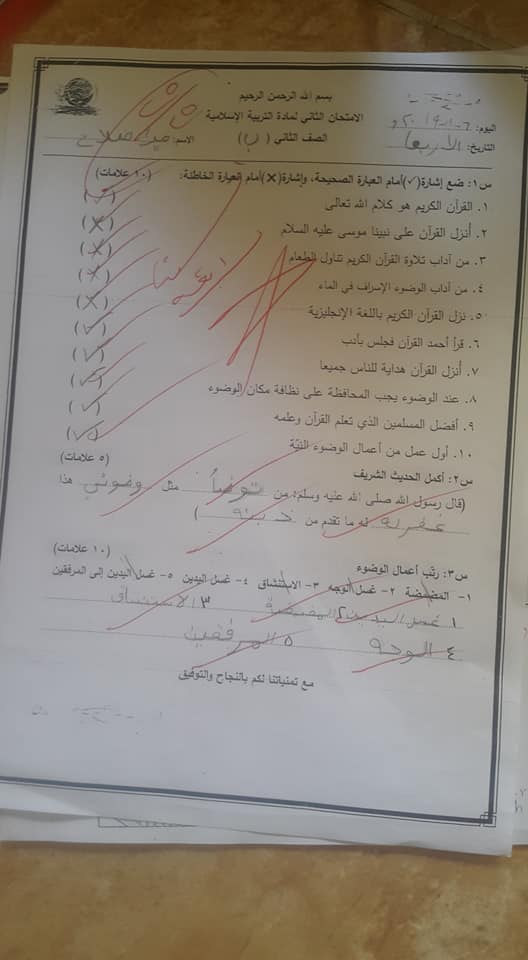 بسم الله الرحمن الرحيم
الامتحان الثاني لمادة التربية الإسلامية
اليوم:
الصف الثاني (ب)
التاريخ: الأربعاء
الاسم: صلاح
س١: ضع إشارة (✓) أمام العبارة الصحيحة، وإشارة (✗) أمام العبارة الخاطئة: (١٠ علامات)
١. القرآن الكريم هو كلام الله تعالى (✓)
٢. أنزل القرآن على نبينا موسى عليه السلام (✗)
٣. من آداب تلاوة القرآن الكريم تناول الطعام (✗)
٤. من آداب الوضوء الإسراف في الماء (✗)
٥. نزل القرآن الكريم باللغة الإنجليزية (✗)
٦. قرأ أحمد القرآن فجلس بأدب (✓)
٧. أنزل القرآن هداية للناس جميعا (✓)
٨. عند الوضوء يجب المحافظة على نظافة مكان الوضوء (✓)
٩. أفضل المسلمين الذي تعلم القرآن وعلمه (✓)
١٠. أول عمل من أعمال الوضوء النيّة (✓)
س٢: أكمل الحديث الشريف (٥ علامات)
(قال رسول الله صلى الله عليه وسلم: من توضأ مثل وضوئي هذا
غفر له له ما تقدم من ذنبه )
س٣: رتّب أعمال الوضوء (١٠ علامات)
١- المضمضة ٢- غسل الوجه ٣- الاستنشاق ٤- غسل اليدين ٥- غسل اليدين إلى المرفقين
١ غسل اليدين ٢ المضمضة ٣ الاستنشاق
٤ الوجه ٥ المرفقين
مع تمنياتنا لكم بالنجاح والتوفيق